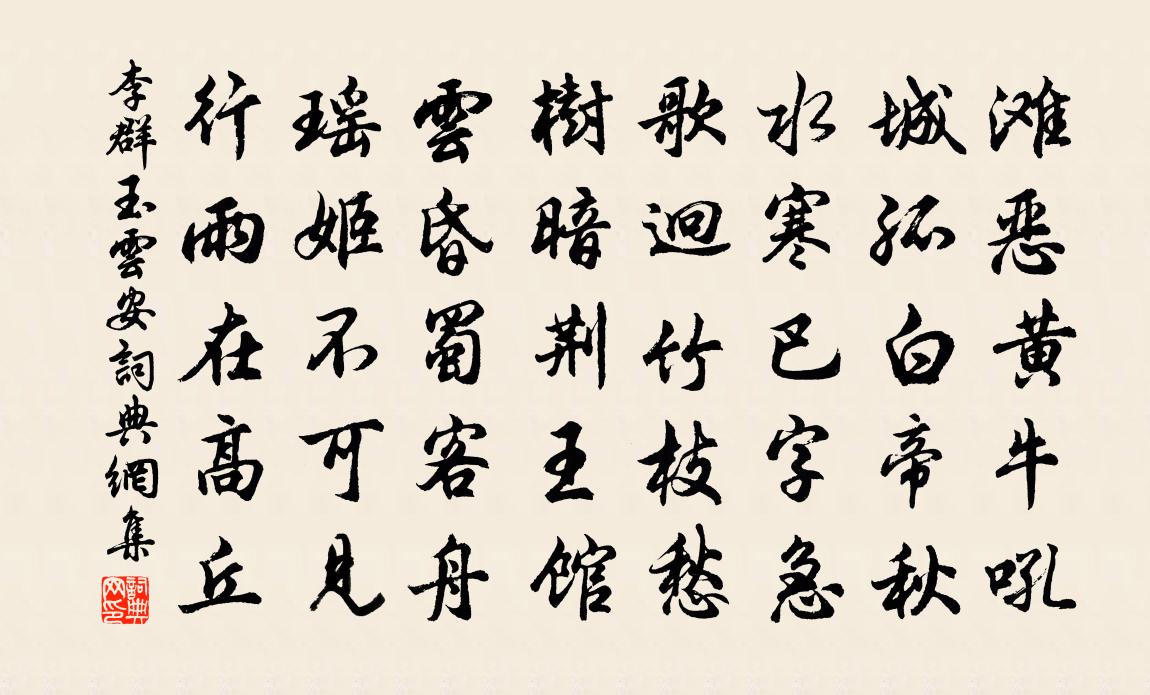 滩恶黄牛吼
城孤白帝秋
水寒巴字急
歌迥竹枝愁
樹暗荆王馆
雲昏蜀客舟
瑶姬不可見
行雨在高丘
李群玉雲安詞典網集
詞典网印